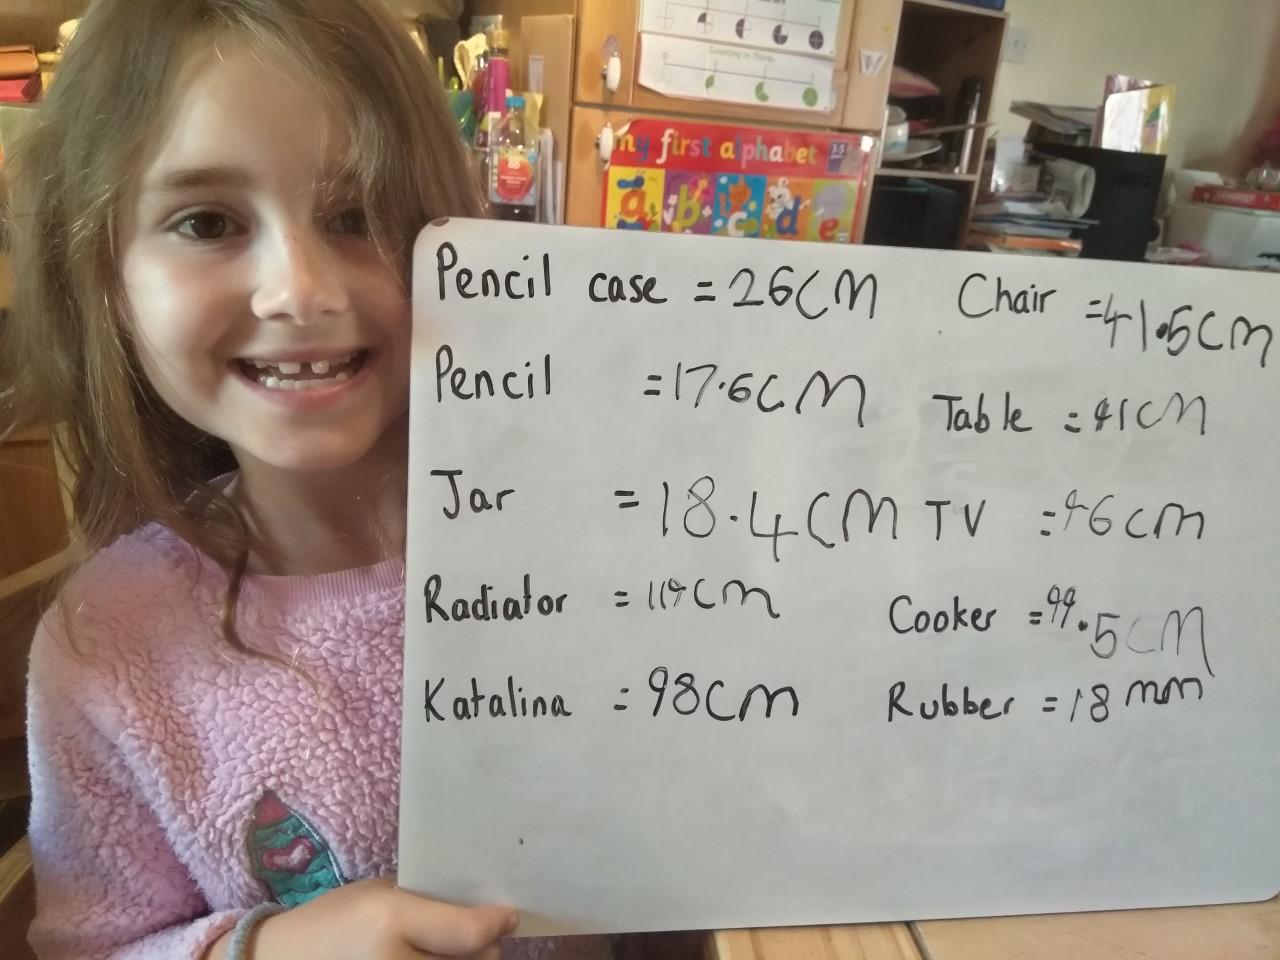 Counting in Thirds
my first alphabet
3-5
a b c d e
Pencil case = 26cm
Pencil = 17.6cm
Jar = 18.4cm
Radiator =
Katalina = 98cm
Chair = 41.5cm
Table = 41cm
TV =
Cooker =
Rubber = 18mm
MONOPOLY